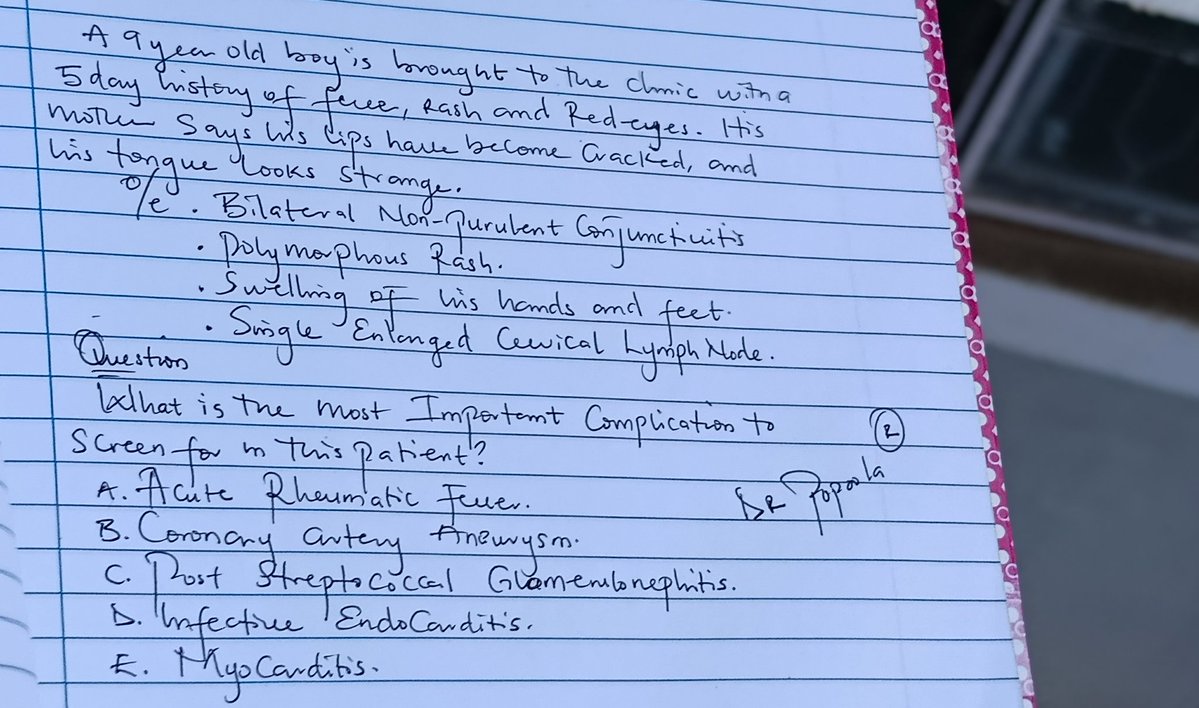 A 9 year old boy is brought to the clinic with a
5 day history of fever, Rash and Red-eyes. His
mother says his lips have become Cracked, and
his tongue looks strange.
O/E . Bilateral Non-purulent Conjunctivitis
. Polymorphous Rash.
. Swelling of his hands and feet.
. Single Enlarged Cervical Lymph Node.
Question
What is the most Important Complication to
Screen for in this patient?
A. Acute Rheumatic Fever.
B. Coronary artery Aneurysm.
C. Post Streptococcal Glomerulonephritis.
D. Infective EndoCarditis.
E. MyoCarditis.
R
Dr Popoola